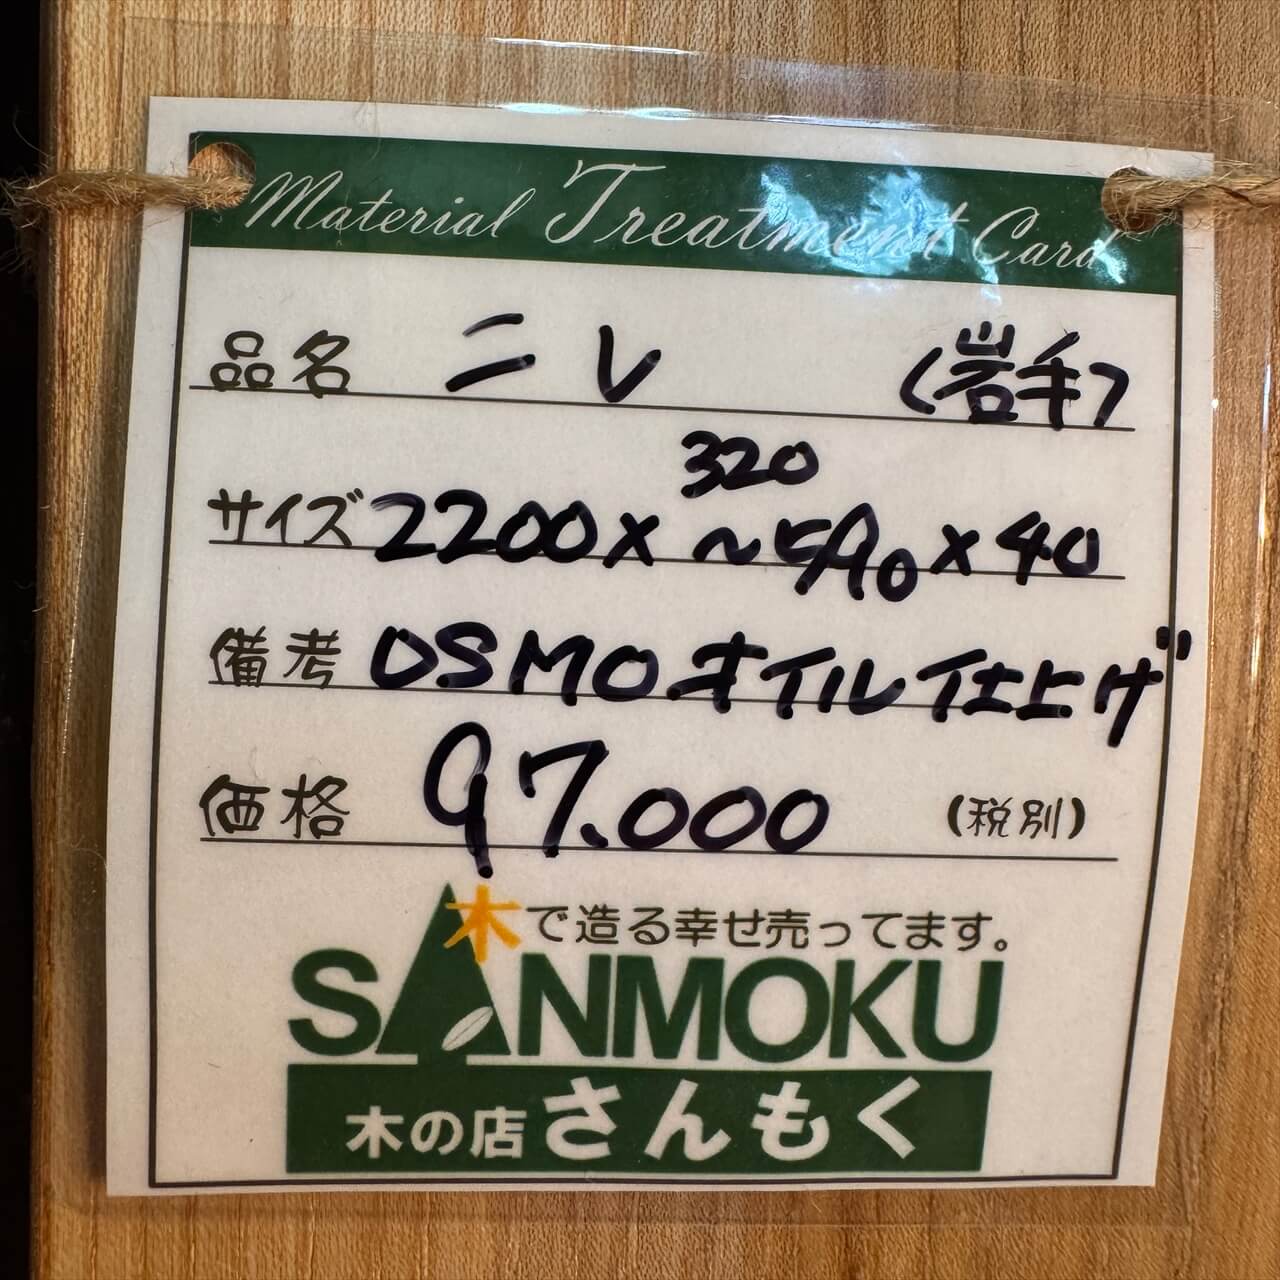 Material Treatment Card
品名 ニレ (岩手)
サイズ 2200×320~590×40
備考 OSMOオイル仕上げ
価格 97.000 (税別)
木で造る幸せ売ってます。
SANMOKU
木の店さんもく